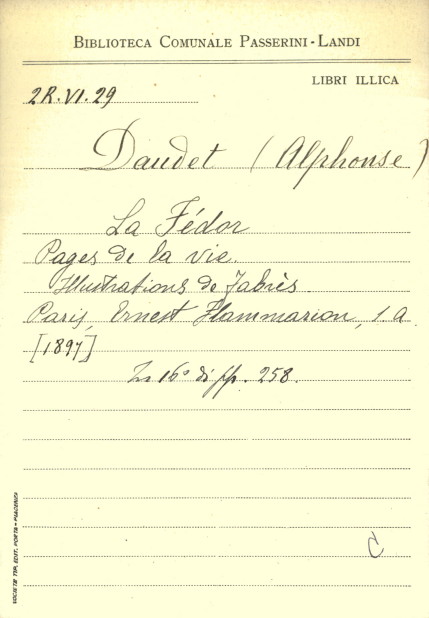 BIBLIOTECA COMUNALE PASSERINI-LANDI
LIBRI ILLICA
2R.VI.29
Daudet (Alphonse)
La Fédor
Pages de la vie.
Illustrations de Fabrès.
Paris, Ernest Flammarion, s. a.
[1897]
In 16° di pp. 258.
C
SOCIETÀ TIP. EDIT. PORTA - PIACENZA